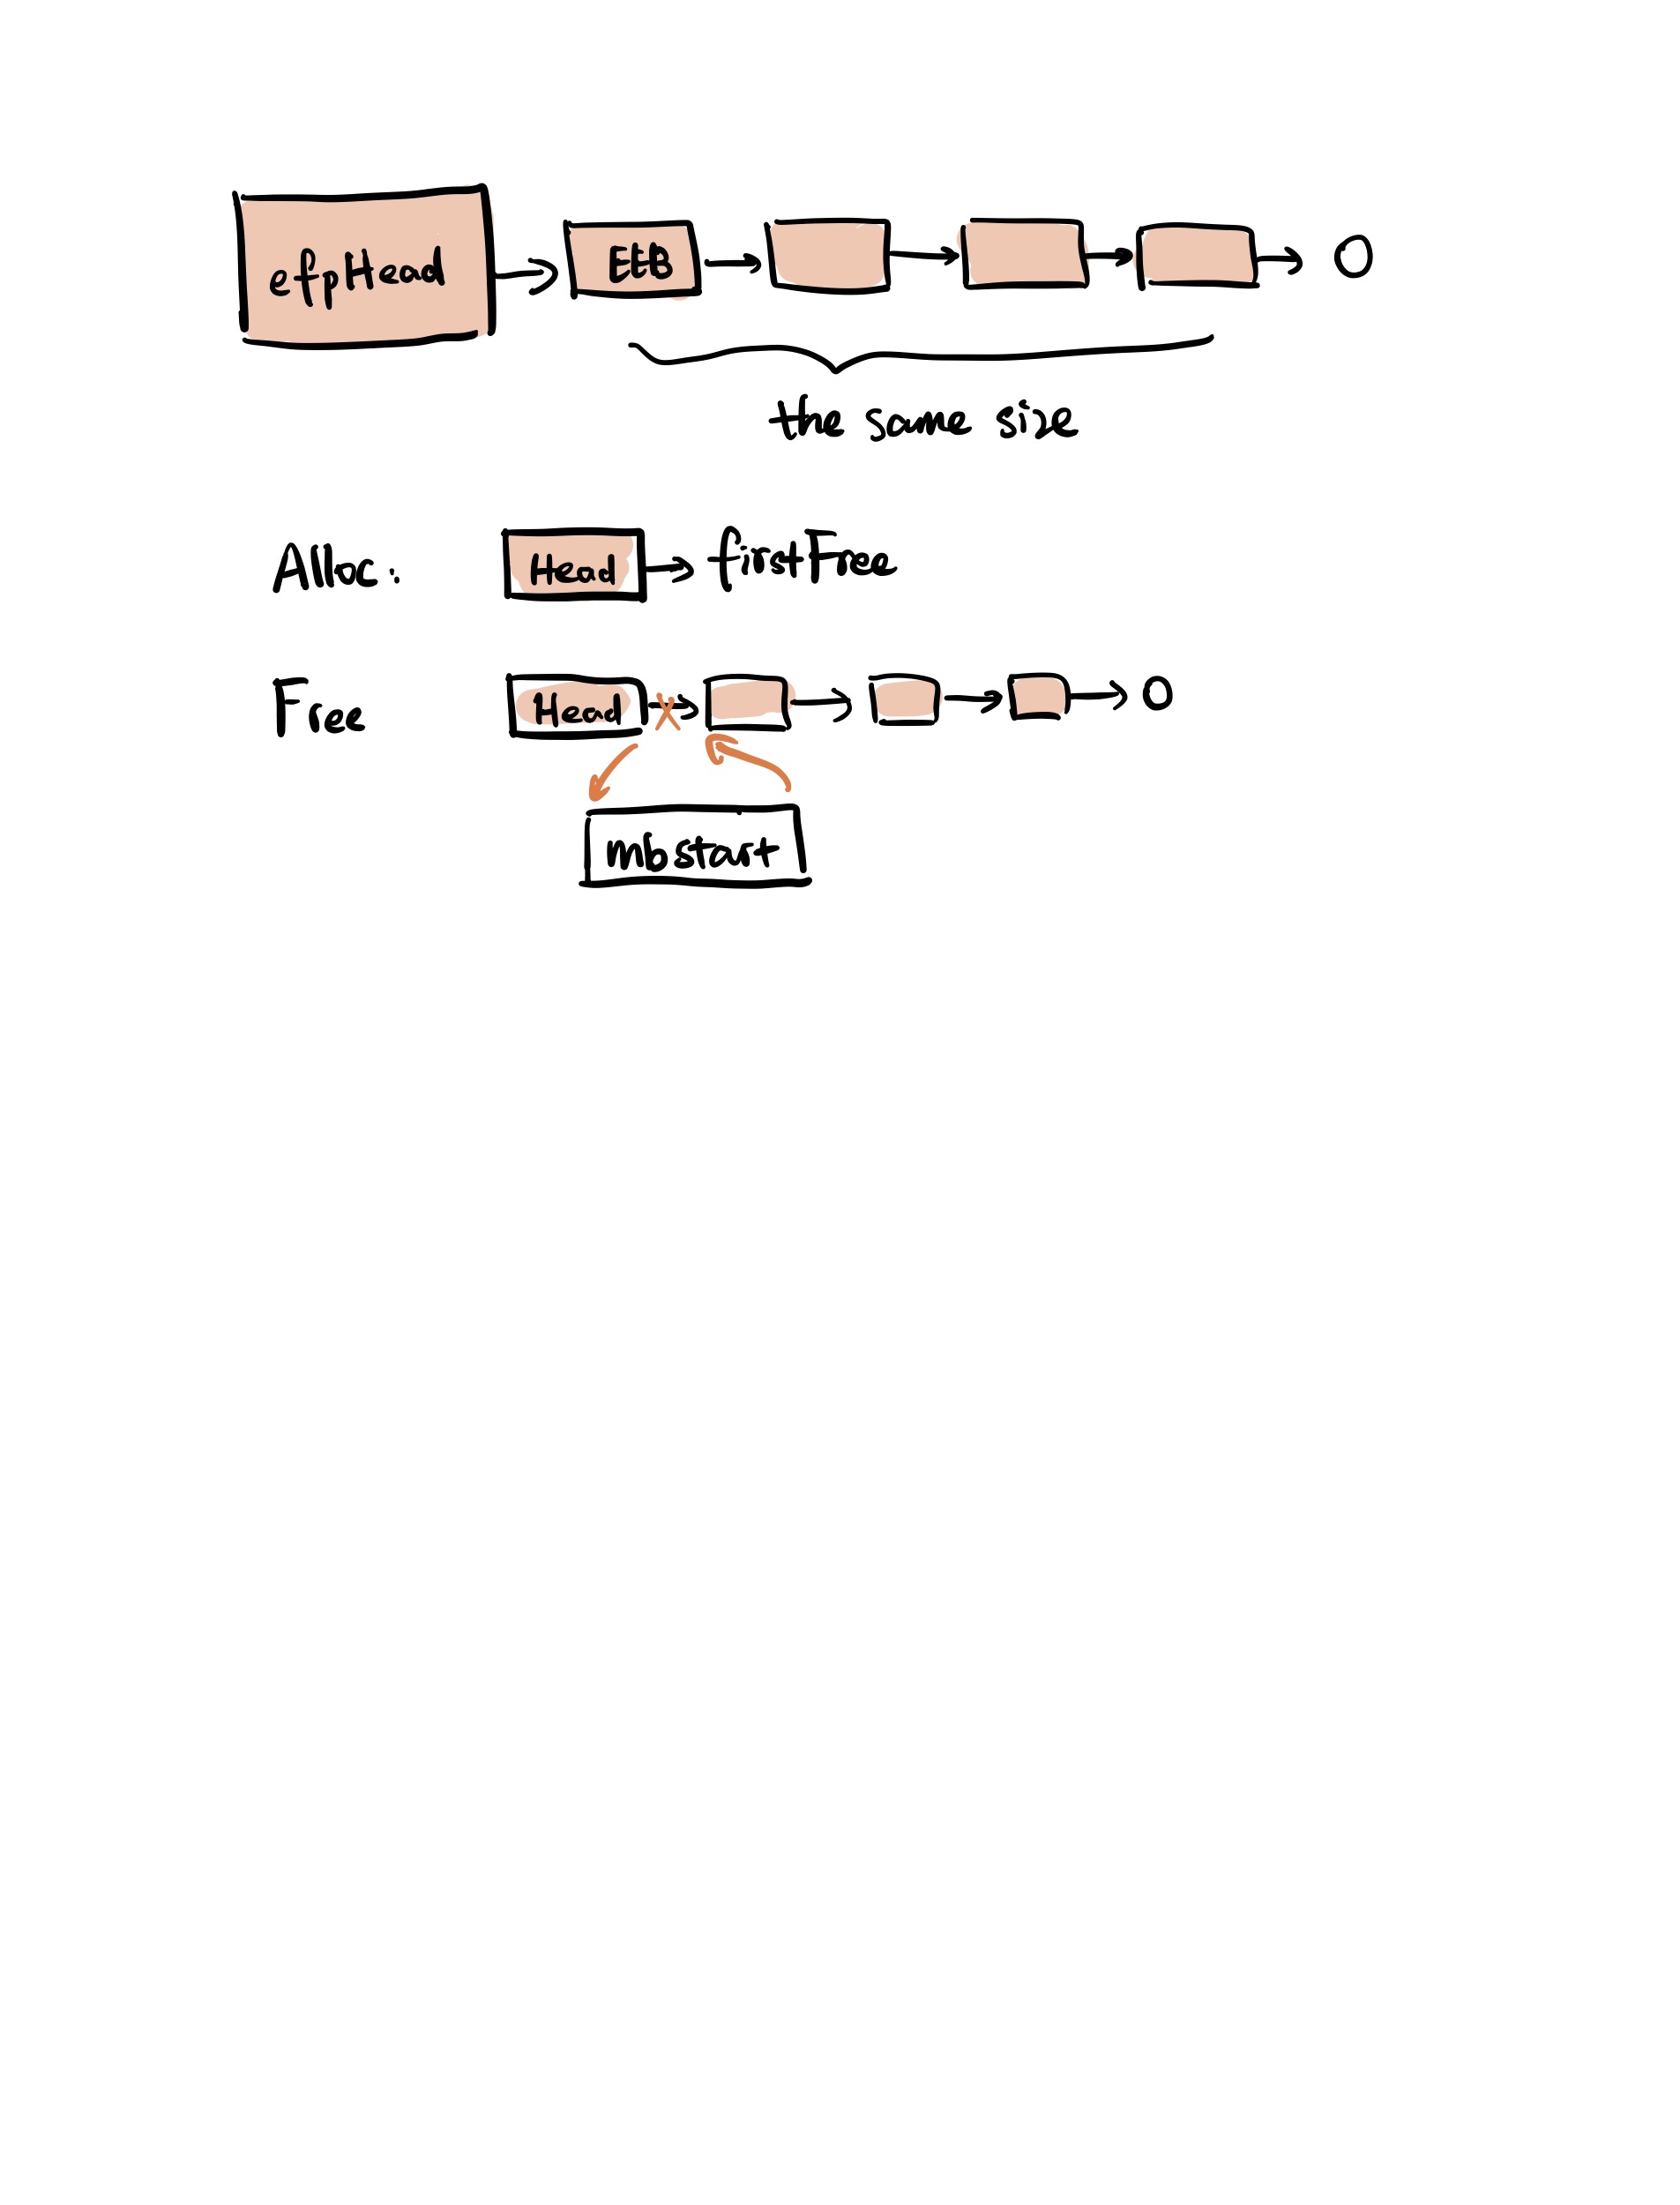 efpHead EEB 0
the same size
Alloc: Head firstFree
Free Head 0
mbstart